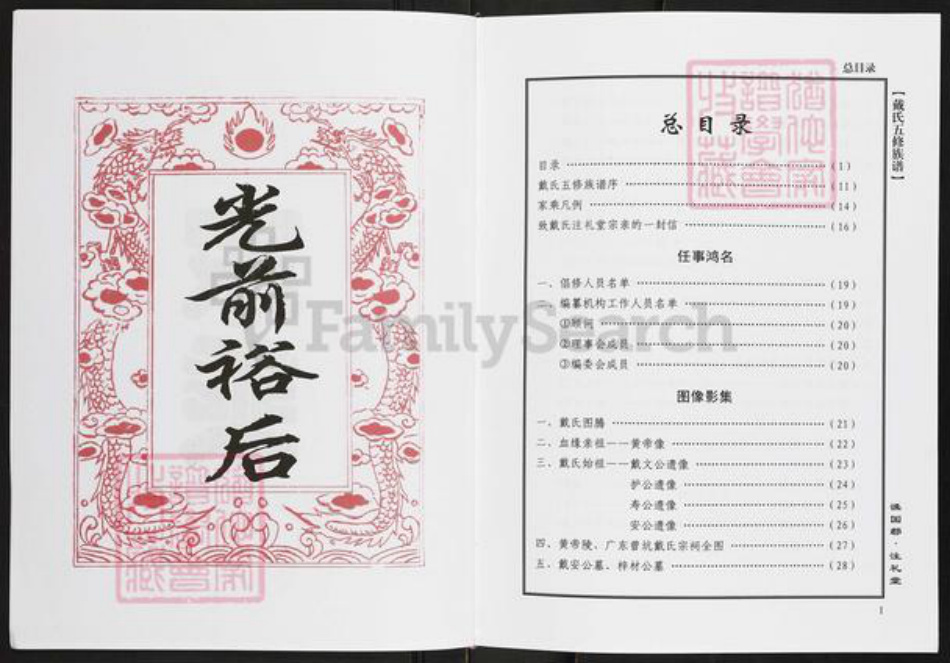 光前裕后
总目录
【戴氏五修族谱】
总目录
目录 ……………………………… (1)
戴氏五修族谱序 ……………………………… (11)
家乘凡例 ……………………………… (14)
致戴氏注礼堂宗亲的一封信 ……………………………… (16)
任事鸿名
一、倡修人员名单 ……………………………… (19)
二、编纂机构工作人员名单 ……………………………… (19)
①顾问 ……………………………… (20)
②理事会成员 ……………………………… (20)
③编委会成员 ……………………………… (20)
图像影集
一、戴氏图腾 ……………………………… (21)
二、血缘亲祖——黄帝像 ……………………………… (22)
三、戴氏始祖——戴文公遗像 ……………………………… (23)
护公遗像 ……………………………… (24)
寿公遗像 ……………………………… (25)
安公遗像 ……………………………… (26)
四、黄帝陵、广东曾坑戴氏宗祠全图 ……………………………… (27)
五、戴安公墓、梓材公墓 ……………………………… (28)
谯国郡·注礼堂
1
FamilySearch